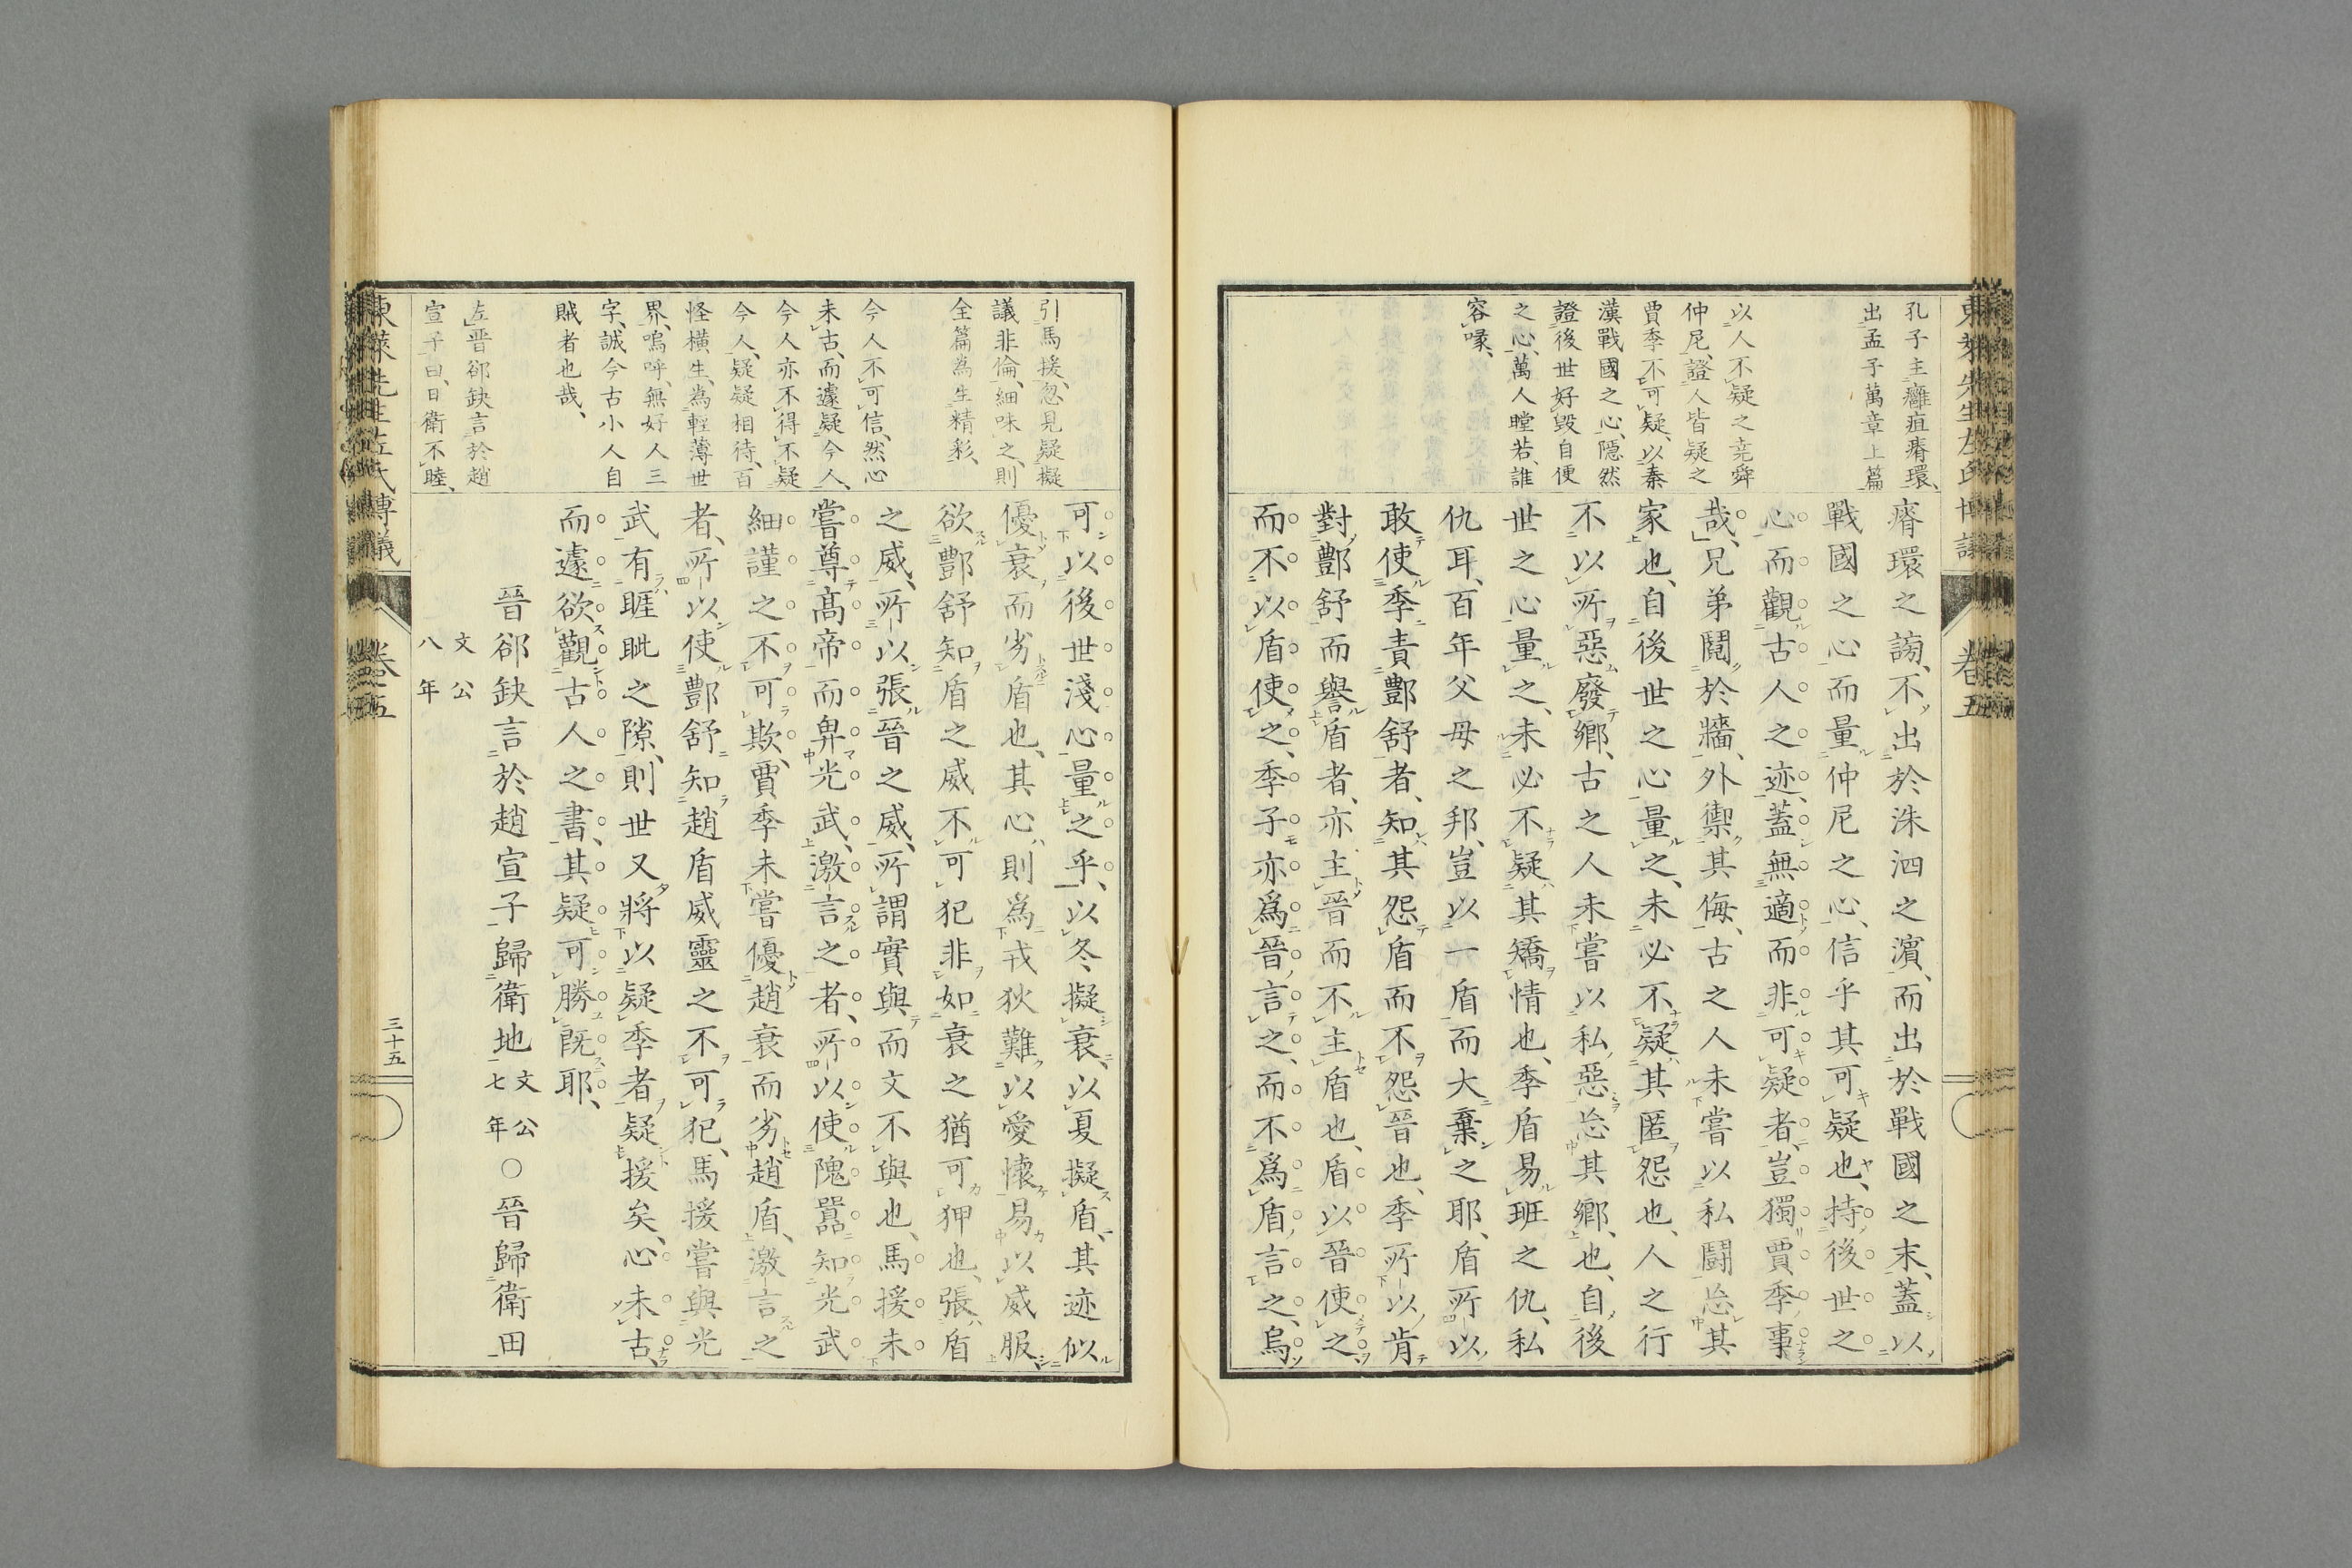 孔子主癰疽瘠環、
出孟子萬章上篇
以人不疑之堯舜
仲尼、證人皆疑之
賈季不可疑、以秦
漢戰國之心、隱然
證後世好毀自便
之心、萬人瞠若、誰
容喙、
瘠環之謗、不出於洙泗之濱、而出於戰國之末、蓋以
戰國之心而量仲尼之心、信乎其可疑也、持後世之
心而觀古人之迹、蓋無適而非可疑者、豈獨賈季事
哉、兄弟鬩於牆、外禦其侮、古之人未嘗以私鬪忘其
家也、自後世之心量之、未必不疑其匿怨也、人之行
不以所惡廢鄉、古之人未嘗以私惡忘其鄉也、自後
世之心量之、未必不疑其矯情也、季盾易班之仇、私
仇耳、百年父母之邦、豈以一盾而大棄之耶、盾所以
敢使季責酆舒者、知其怨盾而不怨晉也、季所以肯
對酆舒而譽盾者、亦主晉而不主盾也、盾以晉使之、
而不以盾使之、季子亦爲晉言之、而不爲盾言之、烏
卷五
引馬援、忽見疑擬
議非倫、細味之、則
全篇為生精彩、
今人不可信、然心
未古、而遽疑今人、
今人亦不得不疑
今人、疑疑相待、百
怪橫生、為輕薄世
界、嗚呼、無好人三
字、誠今古小人自
賊者也哉、
左晉郤缺言於趙
宣子曰、日衛不睦、
可以後世淺心量之乎、以冬擬衰、以夏擬盾、其迹似
優衰而劣盾也、其心則爲戎狄難以愛懷易以威服、
欲酆舒知盾之威不可犯非如衰之猶可狎也、張盾
之威、所以張晉之威、所謂實與而文不與也、馬援未
嘗尊高帝而卑光武、激言之者、所以使隗囂知光武
細謹之不可欺、賈季未嘗優趙衰而劣趙盾、激言之
者、所以使酆舒知趙盾威靈之不可犯、馬援嘗與光
武有睚眦之隙、則世又將以疑季者疑援矣、心未古、
而遽欲觀古人之書、其疑可勝既耶、
晉郤缺言於趙宣子歸衛地文公七年○晉歸衛田
文公八年
東萊先生左氏博議
卷五
三十五